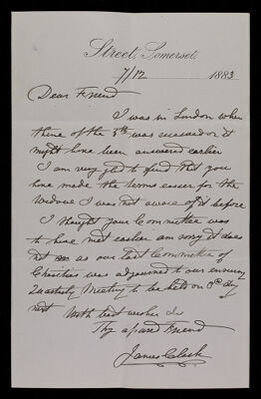 Street, Somerset.
7/12 1883
Dear Friend
I was in London when
thine of the 5th was received or it
might have been answered earlier
I am very glad to find that you
have made the terms easier for the
I was not aware of it before
I thought your Committee was
to have met earlier am sorry it does
not as our last Committee of
Charities was adjourned to our ensuing
Quarterly Meeting to be held on 3rd day
next With best wishes I am
Thy assured Friend
James Clark